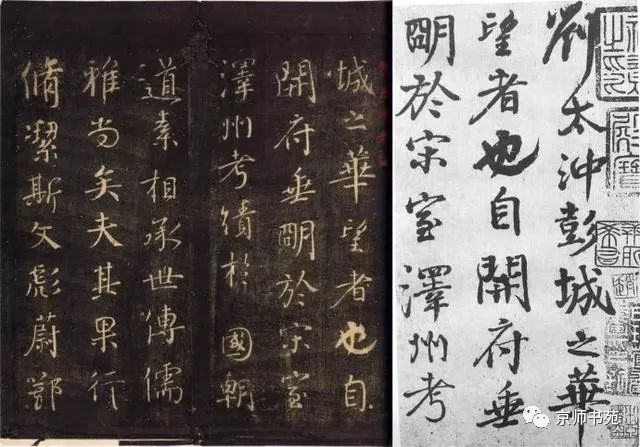 劉太沖彭城之華
望者也自開府垂
朙於宋室澤州考
城之華望者也自
開府垂朙於宋室
澤州考績於國朝
道素相承世傳儒
雅尚矣夫其果行
脩潔斯文彪蔚鄂
京师书苑